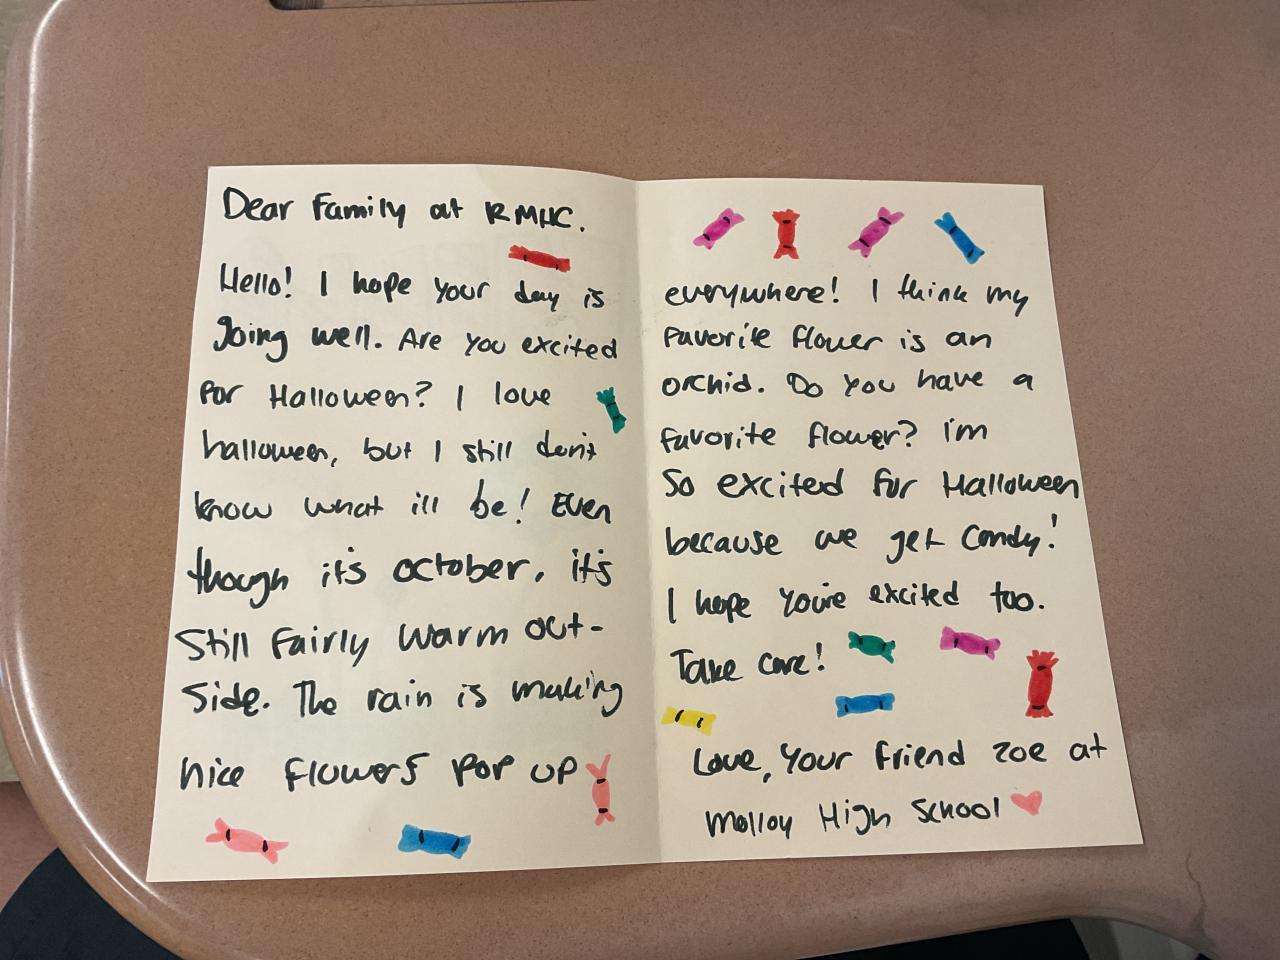 Dear Family at RMHC.
Hello! I hope your day is
going well. Are you excited
for Halloween? I love
halloween, but I still don't
know what ill be! Even
though it's october, it's
Still Fairly warm out-
side. The rain is making
nice flowers pop up
everywhere! I think my
favorite flower is an
orchid. Do you have a
favorite flower? im
So excited for Halloween
because we get candy!
I hope you're excited too.
Take care!
Love, your friend zoe at
Molloy High School